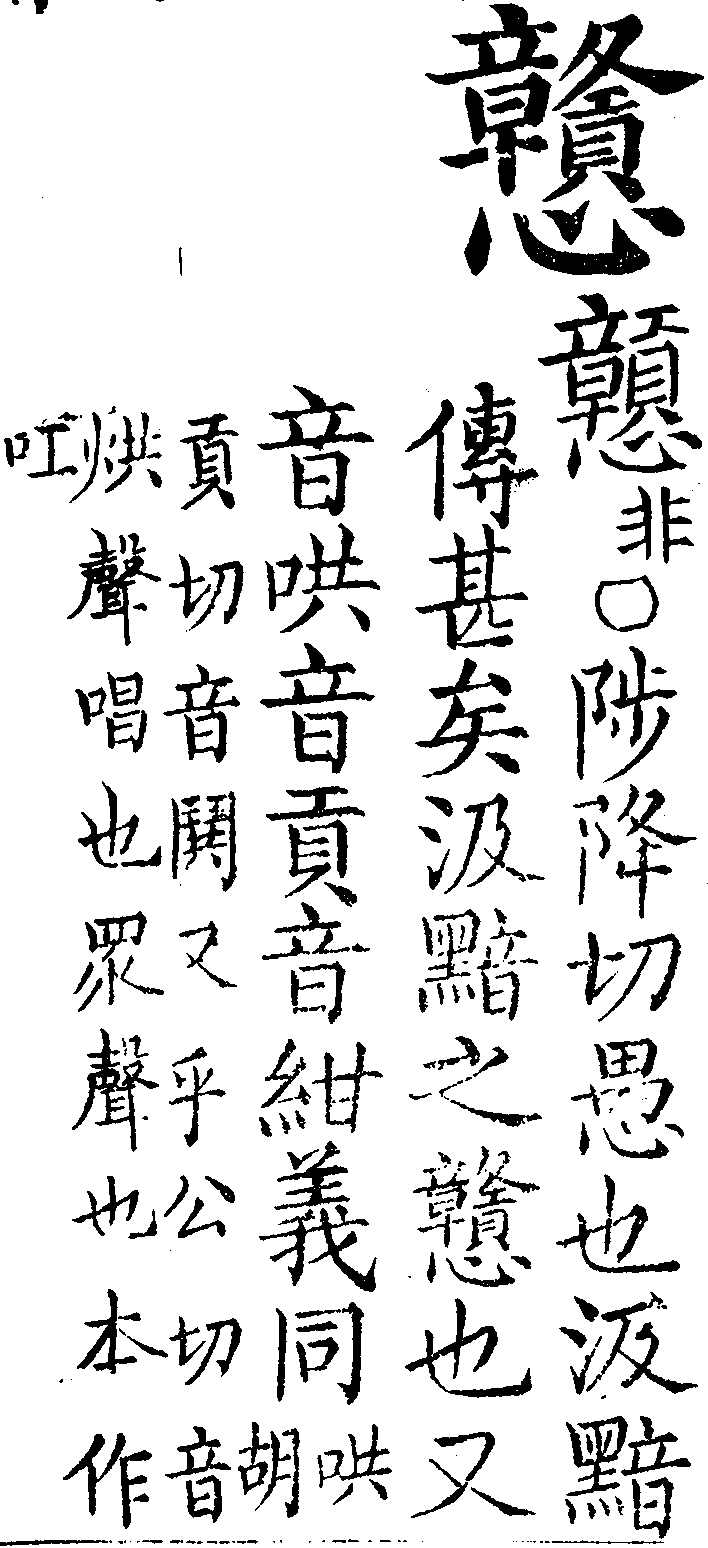 戇
戅非○陟降切愚也汲黯
傳甚矣汲黯之戇也又
音哄音貢音紺義同哄
胡
貢切音鬨又乎公切音
烘聲唱也眾聲也本作
叿